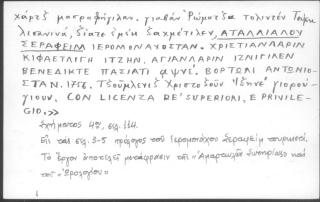 χάρτζ μασραφήγιλαν. γιαβάν Ῥώματζα
λισανινά, ΑΤΑΛΛΙΑΛΟΥ
ΣΕΡΑΦΕΙΜ ΙΕΡΟΜΟΝΑΧΟΣΤΑΝ. ΧΡΙΣΤΙΑΝΛΑΡΙΝ
ΚΙΦΑΕΤΛΙΓΗ ΙΤΖΗΝ. ΑΓΙΑΝΛΑΡΙΝ ΙΖΝΙΓΙΛΕΝ
ΒΕΝΕΔΙΚΤΕ ΠΑΣΙΑΤΙ αψνϛ. ΒΟΡΤΟΛΙ ΑΝΤΩΝΙΟ-
ΣΤΑΝ. 1756. Χριστοδοῦν γιορού-
γιουν. CON LICENZA DE' SUPERIORI, E PRIVILE-
GIO.>>
Σχήματος 4ον, σελ. 114.
Εἰς τάς σελ. 3-5 πρόλογος τοῦ Ἱερομονάχου Σεραφείμ τουρκιστί.
Τό ἔργον ἀποτελεῖ μετάφρασιν τῆς "Ἁμαρτωλῶν Σωτηρίας" καί
τοῦ "Ὡρολογίου"